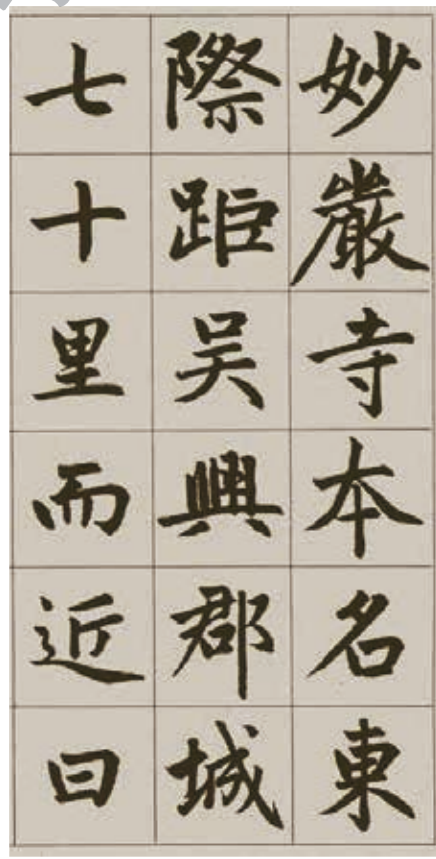 妙嚴寺本名東
際距吴興郡城
七十里而近曰